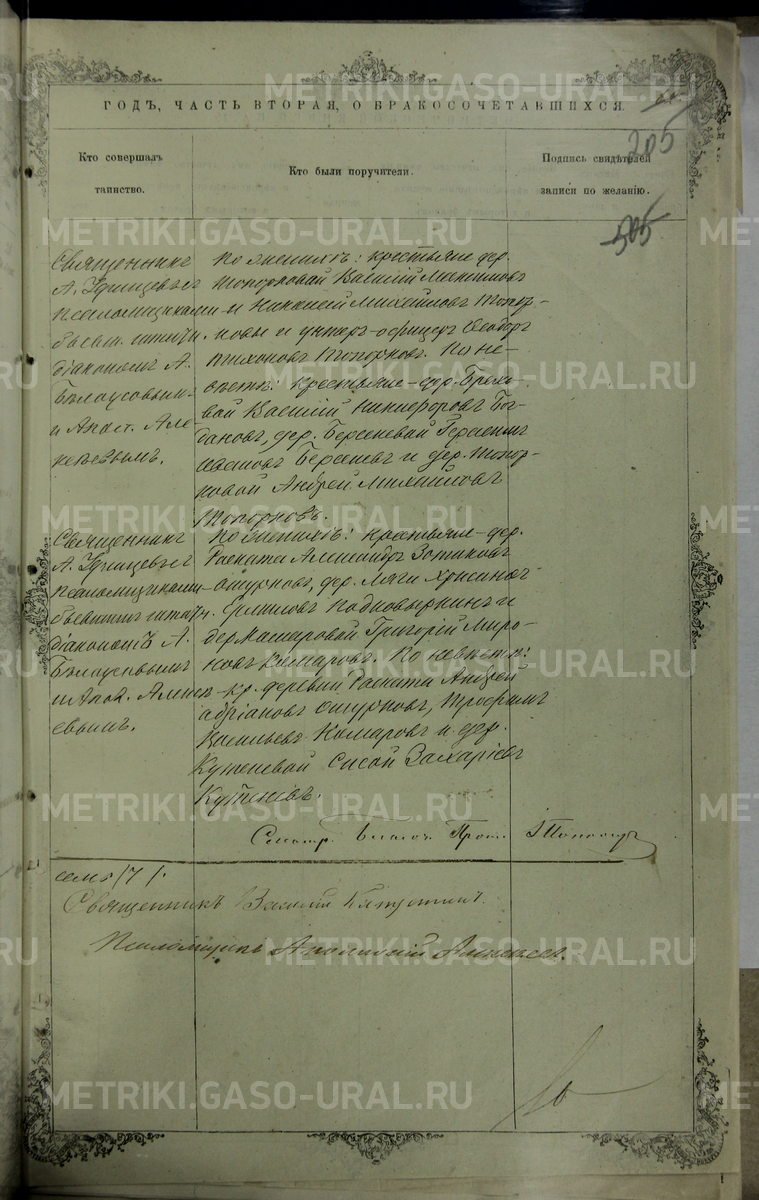 ГОДЪ, ЧАСТЬ ВТОРАЯ, О БРАКОСОЧЕТАВШИХСЯ.
205
505
Кто совершалъ
таинство.
Кто были поручители.
Подпись свидѣтелей
записи по желанію.
Священникъ
А. Удинцевъ съ
псаломщиками
бывш.
діакономъ А.
Бѣлоусовымъ
и Апол. Але-
ксѣевымъ.
По женихѣ: крестьяне дер.
Топорковой Василій
и Михайловъ Топор-
ковы и унтеръ-офицеръ Ѳеодоръ
Тихоновъ Топорковъ. По не-
вѣстѣ: крестьяне дер.
Василій Никифоровъ Бог-
дановъ, дер. Берсеневой
Ивановъ Берсеневъ и дер. Топор-
ковой Андрей Михайловъ
Топорковъ.
Священникъ
А. Удинцевъ съ
псаломщиками
бывшимъ
діакономъ А.
Бѣлоусовымъ
и Апол. Алекс-
ѣевымъ.
По женихѣ: крестьяне дер.
Раската Александръ Зотиковъ
Ошурковъ, дер. Ляги
Ермиловъ Подковыркинъ и
дер. Макаровой Григорій Миро-
новъ Комаровъ. По невѣстѣ:
кр. деревни Раската Андрей
Адріановъ Ошурковъ, Трофимъ
Васильевъ Комаровъ и дер.
Кутеневой Сисой Захаріевъ
Кутеневъ.
семь /7/.
Священникъ Василій
Псаломщикъ Аполлоній Алексѣев.
METRIKI.GASO-URAL.RU